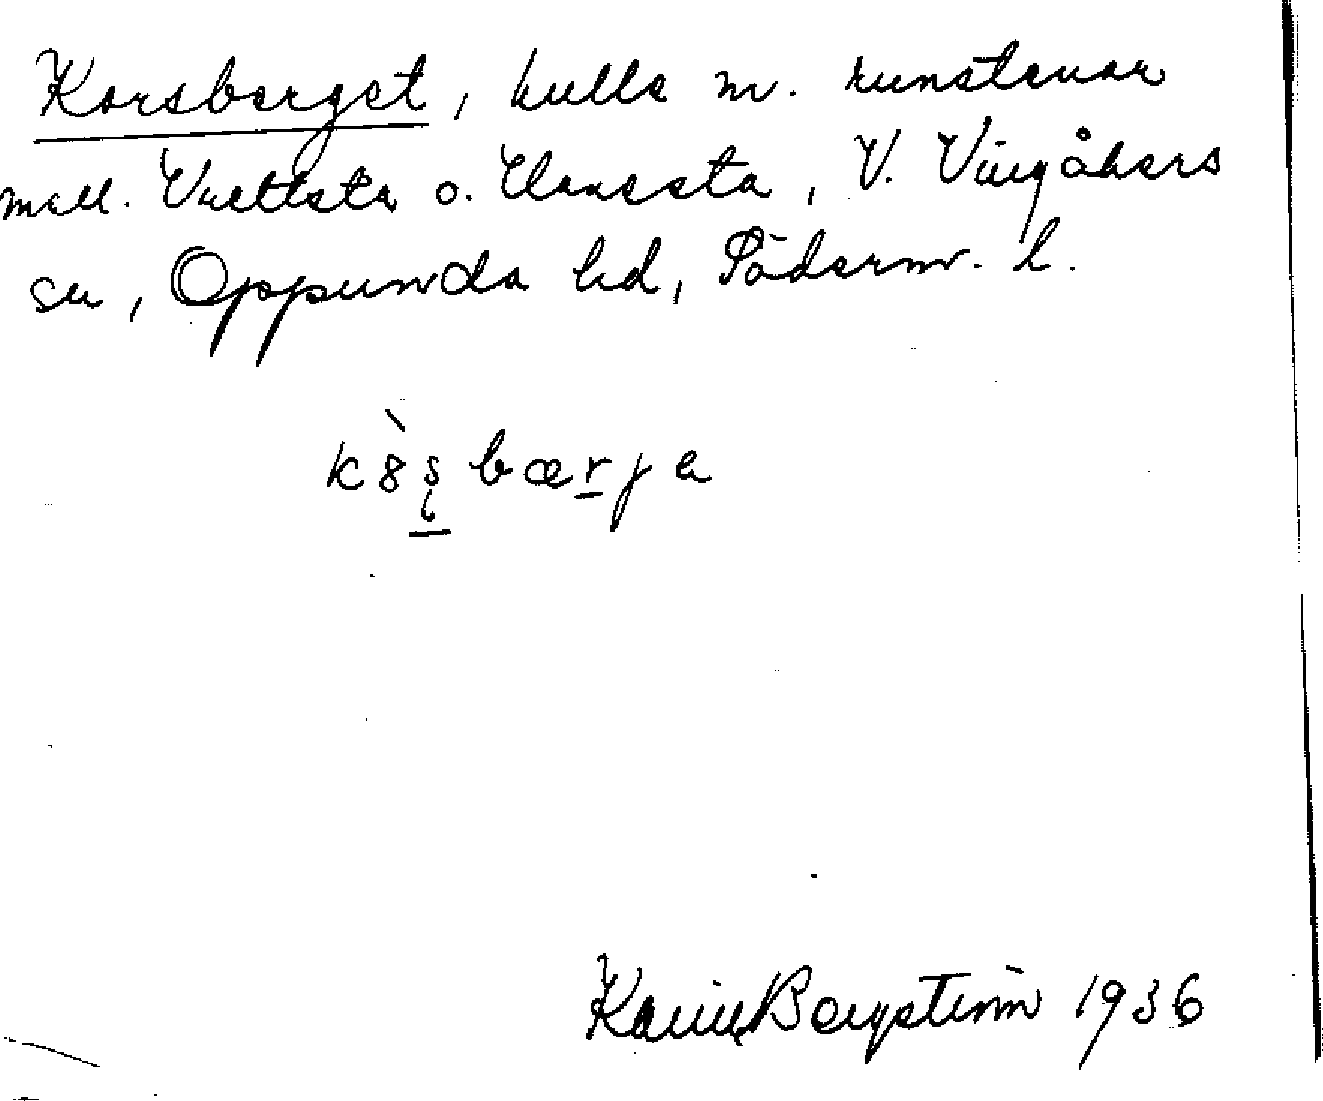 Korsberget, kulle m. runstenar
mell. Vrettsta o. Hanesta, V. Vingåkers
sn, Oppunda hd, Söderm. l.
kò8ʂbærje
Karin Bergström 1936